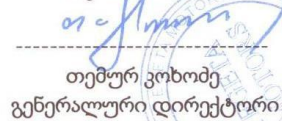 თემურ კოხოძე
გენერალური დირექტორი